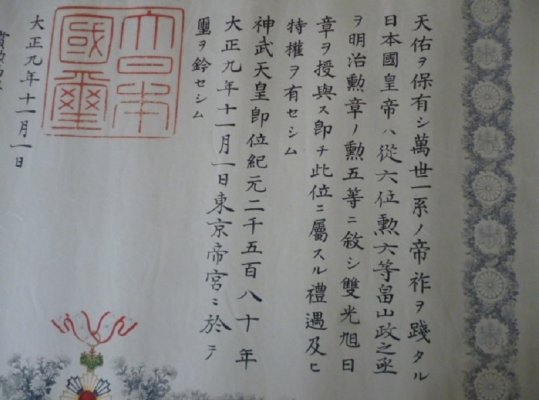 天佑ヲ保有シ萬世一系ノ帝祚ヲ踐タル
日本國皇帝ハ從六位勲六等畠山政之丞
ヲ明治勲章ノ勲五等ニ敘シ雙光旭日
章ヲ授與ス即チ此位ニ屬スル禮遇及ヒ
特權ヲ有セシム
神武天皇即位紀元二千五百八十年
大正九年十一月一日東京帝宮ニ於テ
璽ヲ鈐セシム
大日本國璽
大正九年十一月一日